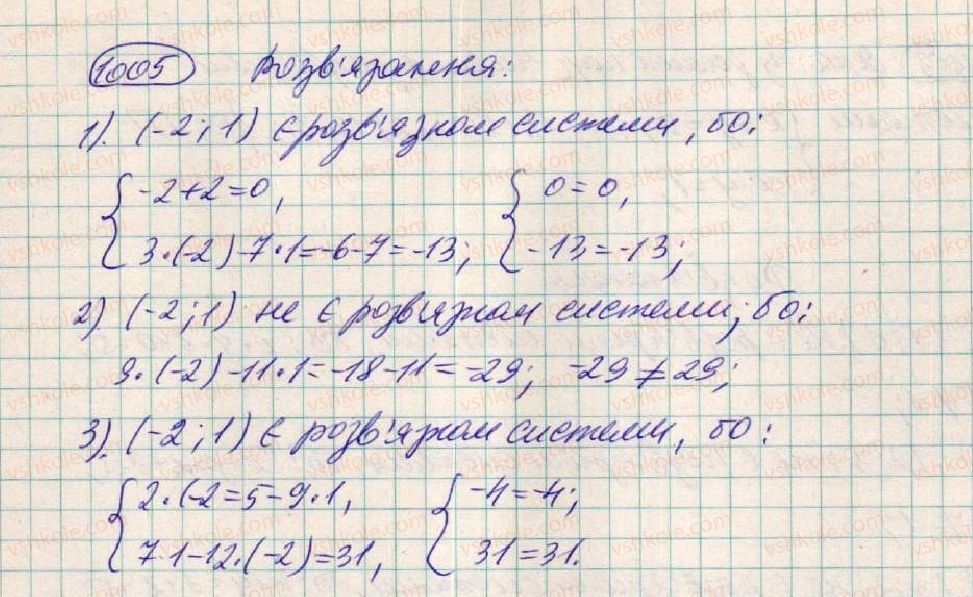 1005 Розв'язання:
1). (-2; 1) є розв'язком системи, бо:
{ -2+2=0, { 0=0,
3·(-2)-7·1=-6-7=-13; -13=-13;
2) (-2; 1) не є розв'язком системи; бо:
9·(-2)-11·1=-18-11=-29; -29≠29;
3). (-2; 1) є розв'язком системи, бо:
{ 2·(-2=5-9·1, { -4=-4;
7·1-12·(-2)=31, 31=31.